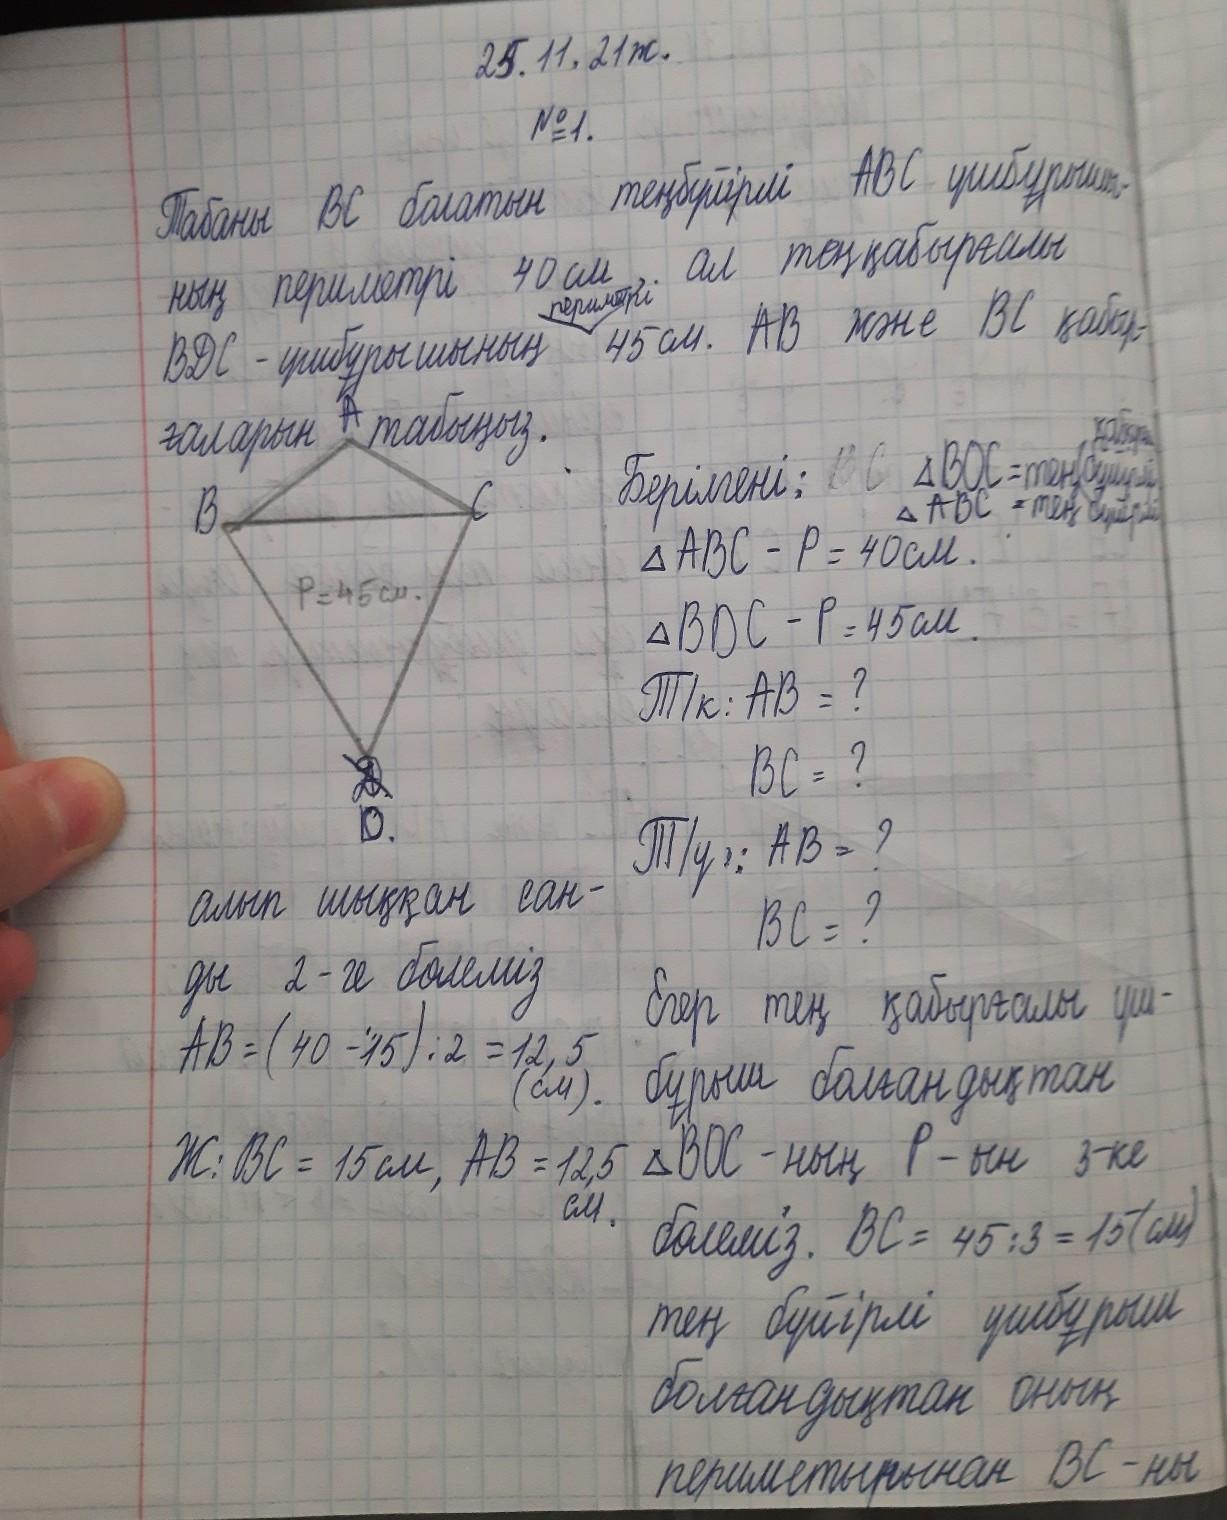 25.11.21ж.
№1.
Табаны ВС болатын теңбүйірлі АВС үшбұрышы-
ның периметрі 40см, ал теңқабырғалы
периметрі
BDC - үшбұрышының 45см. АВ және ВС қабыр-
ғаларын табыңыз.
A
B
C
P=45см.
D.
Берілгені: BC △BDC = тең бүйірлі
қабырғ
△ABC = тең бүйірлі
△ABC - P = 40см.
△BDC - P = 45см.
Т/к: AB = ?
BC = ?
Т/у: AB = ?
BC = ?
Егер тең қабырғалы үш-
бұрыш болғандықтан
△BDC -ның P-ын 3-ке
бөлеміз. BC = 45:3 = 15(см)
тең бүйірлі үшбұрыш
болғандықтан оның
периметырынан BC-ны
алып шыққан сан-
ды 2-ге бөлеміз
AB=(40-15):2 = 12,5
(см).
Ж: BC = 15см, AB = 12,5
см.